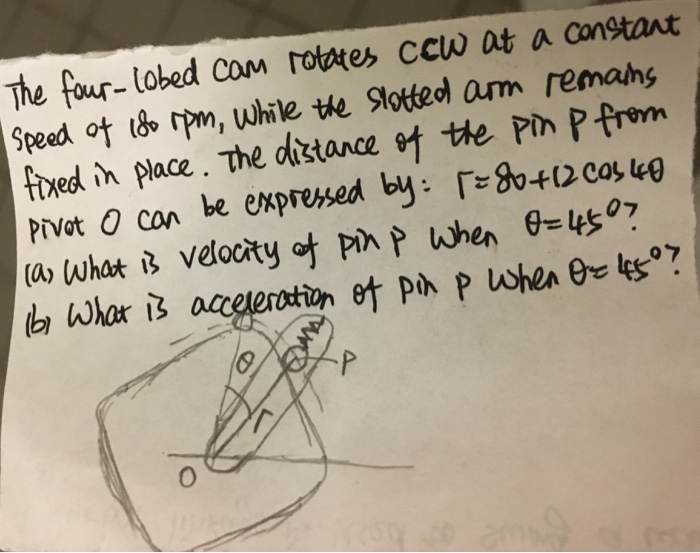 The four-lobed cam rotates CCW at a constant
speed of 180 rpm, while the slotted arm remains
fixed in place. The distance of the pin P from
pivot O can be expressed by: r=80+12 cos 4θ
(a) What is velocity of pin P when θ=45°?
(b) What is acceleration of pin P when θ=45°?
θ
P
r
O